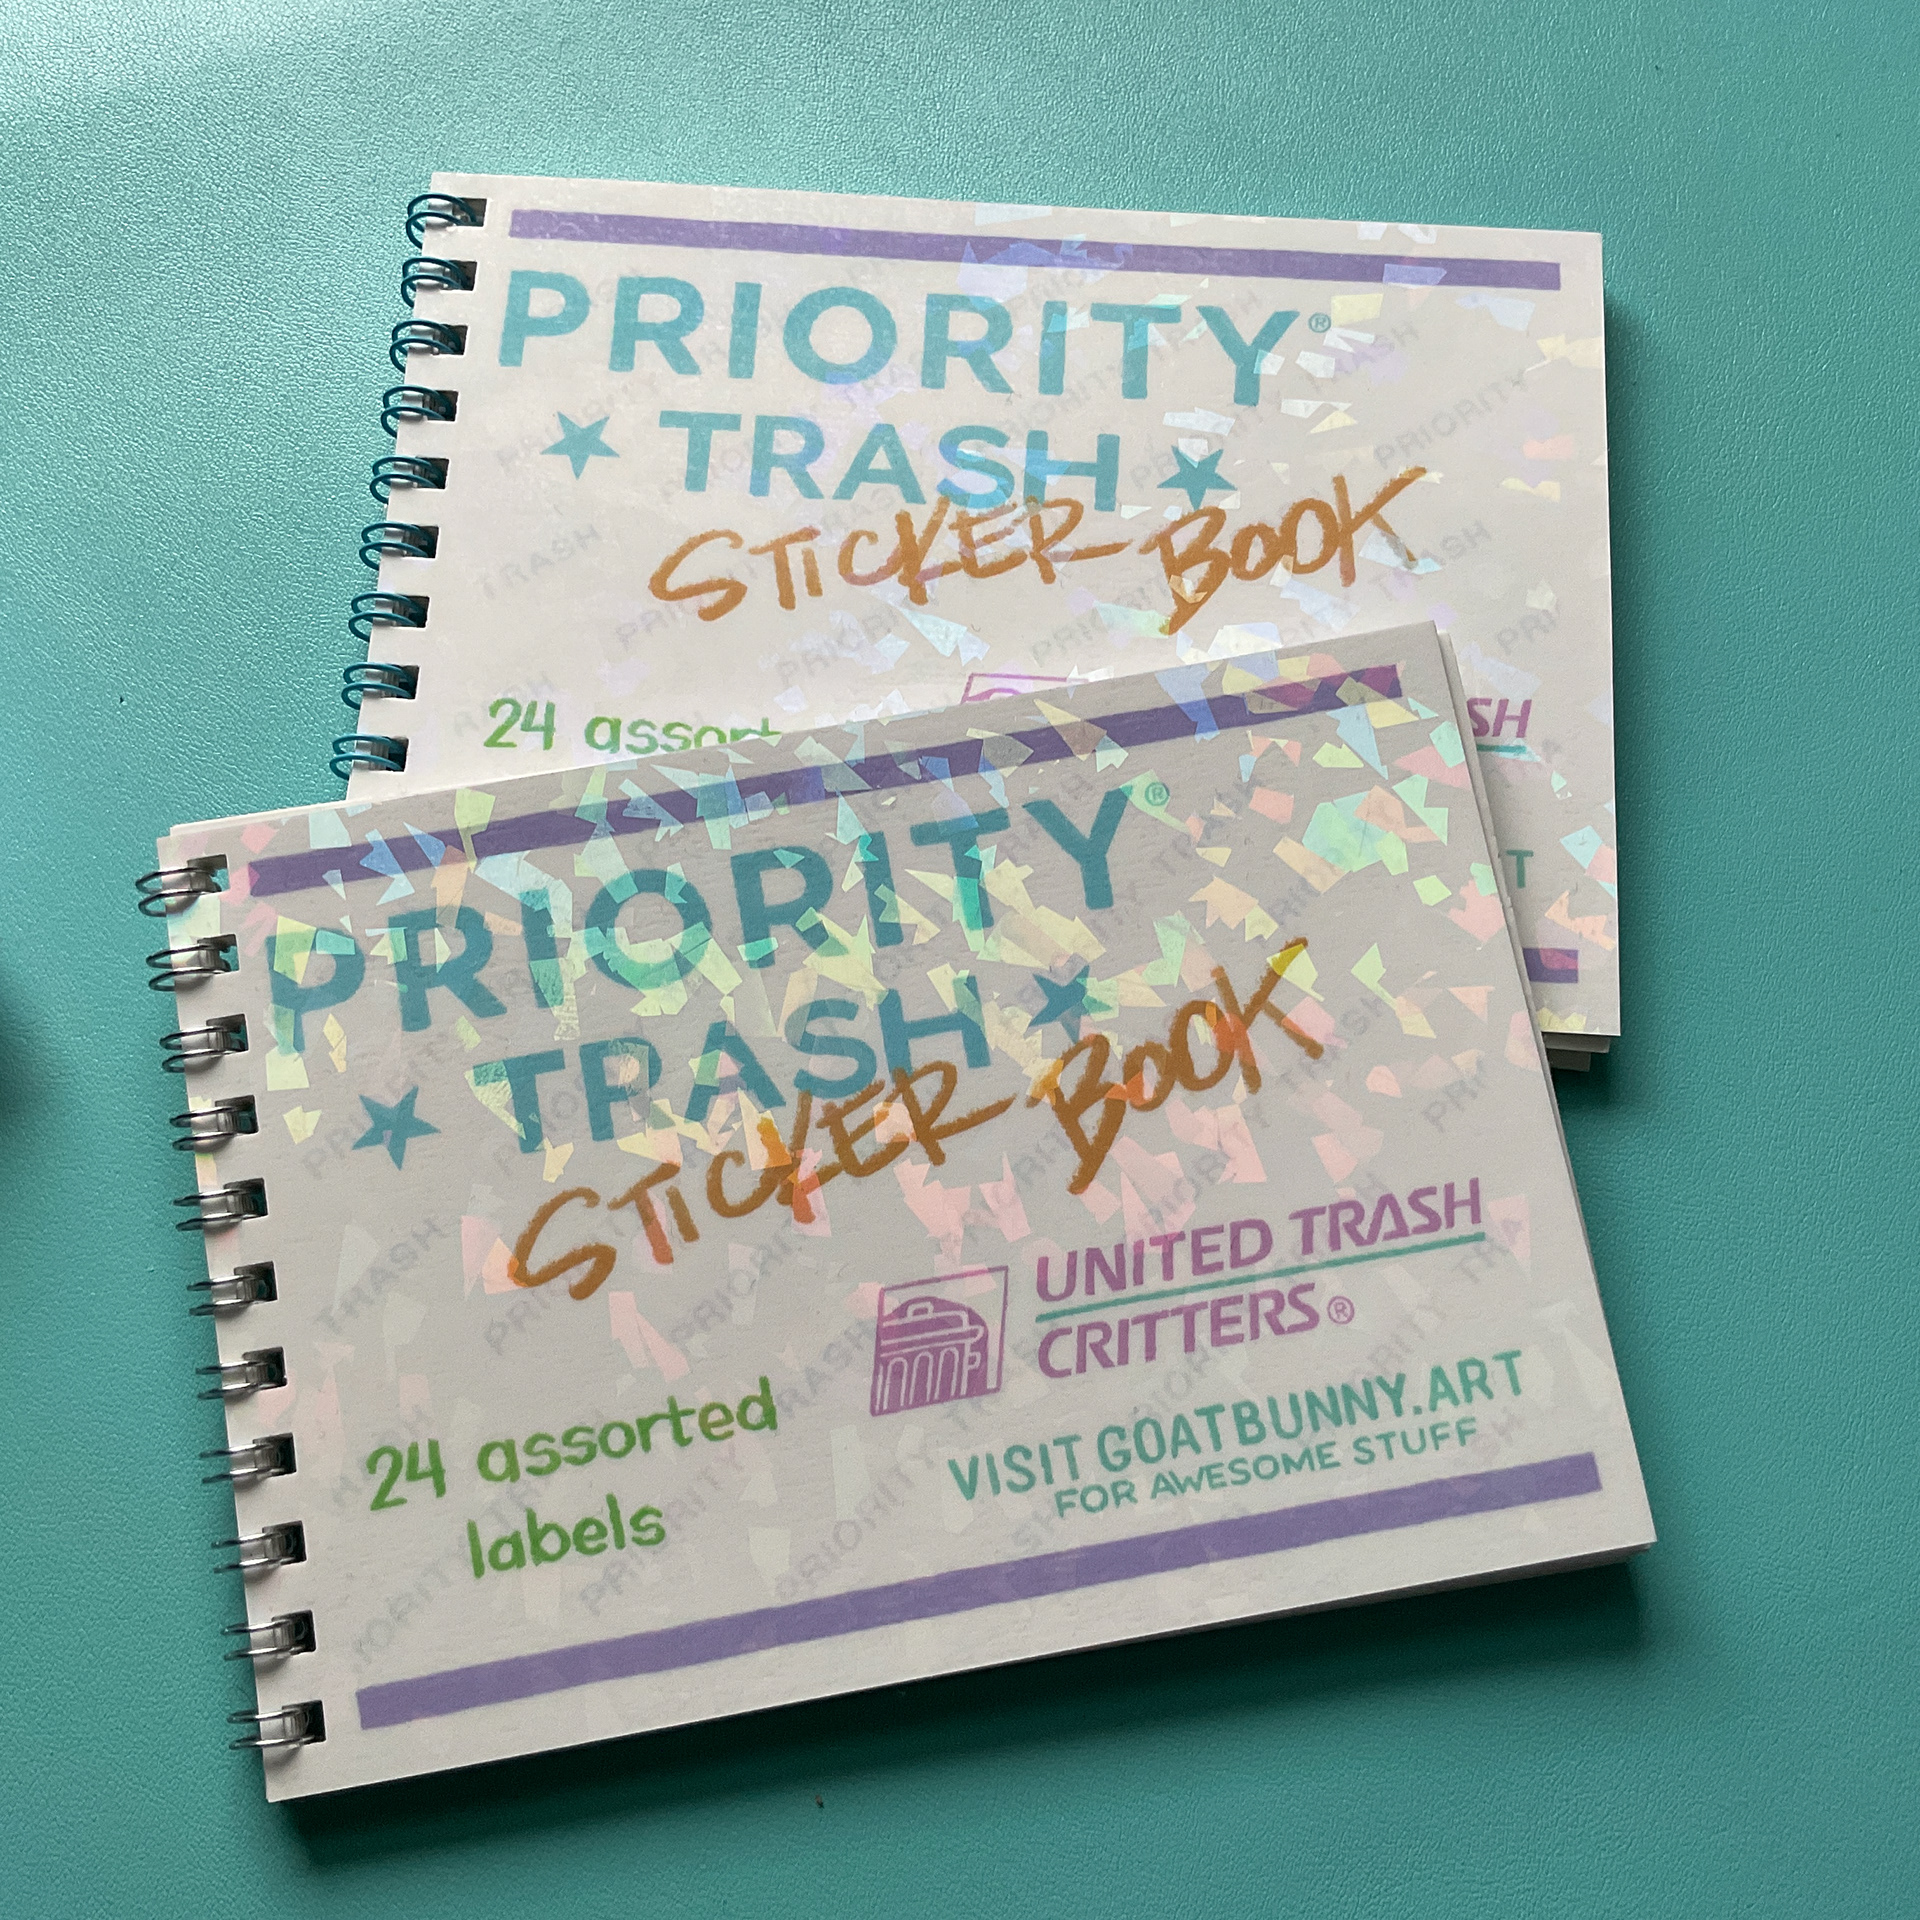 PRIORITY®
★ TRASH ★
STICKER BOOK
24 assort
SH
T
PRIORITY®
★ TRASH ★
STICKER BOOK
UNITED TRASH
CRITTERS®
24 assorted
labels
VISIT GOATBUNNY.ART
FOR AWESOME STUFF